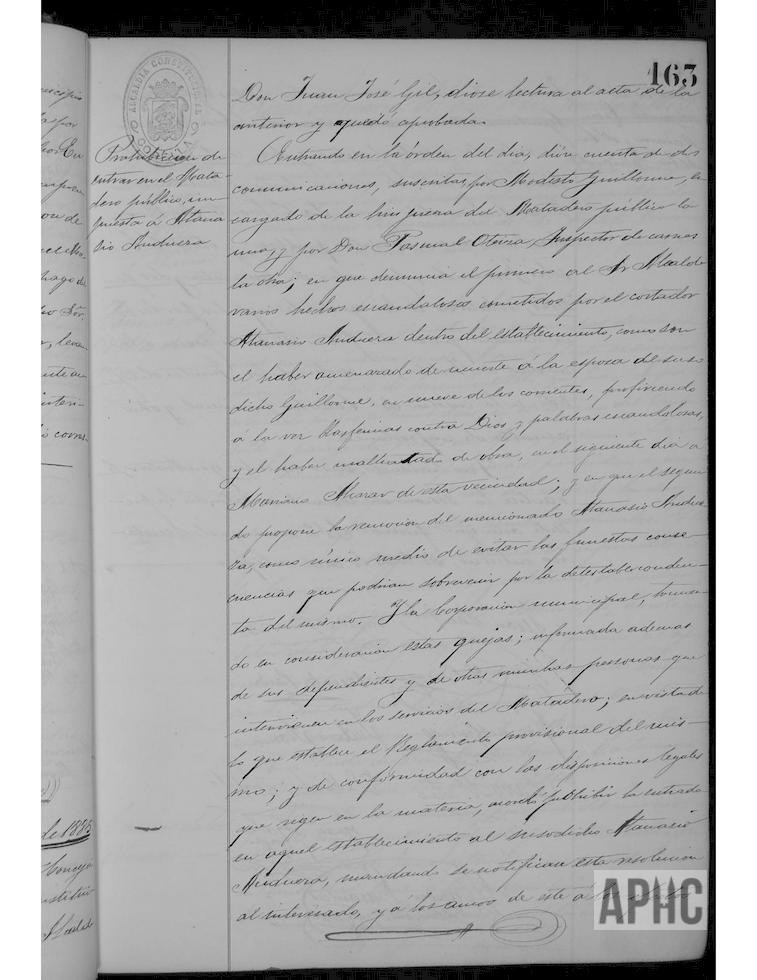 163
ALCALDIA CONSTITUCIONAL
CORELLA
Prohibicion de
entrar en el Mata-
dero público, im-
puesta á Atana-
sio Andueza
Don Juan José Gil, diose lectura al acta de la
anterior y quedó aprobada.
Entrando en la órden del dia, dióse cuenta de dos
comunicaciones, suscritas por Modesto Guillorme, en
cargado de la limpieza del Matadero público la
una, y por Don Pascual Oteiza, Inspector de carnes
la otra; en que denuncia el primero al Sr Alcalde
varios hechos escandalosos cometidos por el cortador
Atanasio Andueza dentro del establecimiento, como son
el haber amenazado de muerte á la esposa del suso
dicho Guillorme, en nueve de los corrientes, profiriendo
á la vez blasfemias contra Dios y palabras escandalosas,
y el haber maltratado de obra, en el siguiente dia a
Mariano de esta vecindad; y en que el segun
do propone la remocion del mencionado Atanasio Andue
za, como único medio de evitar las funestas conse
cuencias que podrian sobrevenir por la detestable conduc-
ta del mismo. Y la Corporacion municipal, toman-
do en consideracion estas quejas; informada ademas
de sus dependientes y de otras muchas personas que
intervienen en los servicios del Matadero; en vista de
lo que establece el Reglamento provisional del mis-
mo; y de conformidad con las disposiciones legales
que rigen en la materia, acordó prohibir la entrada
en aquel establecimiento al susodicho Atanasio
Andueza, mandando se notifican esta resolucion
al interesado, y á los amos de este á los
de 1885
APHC